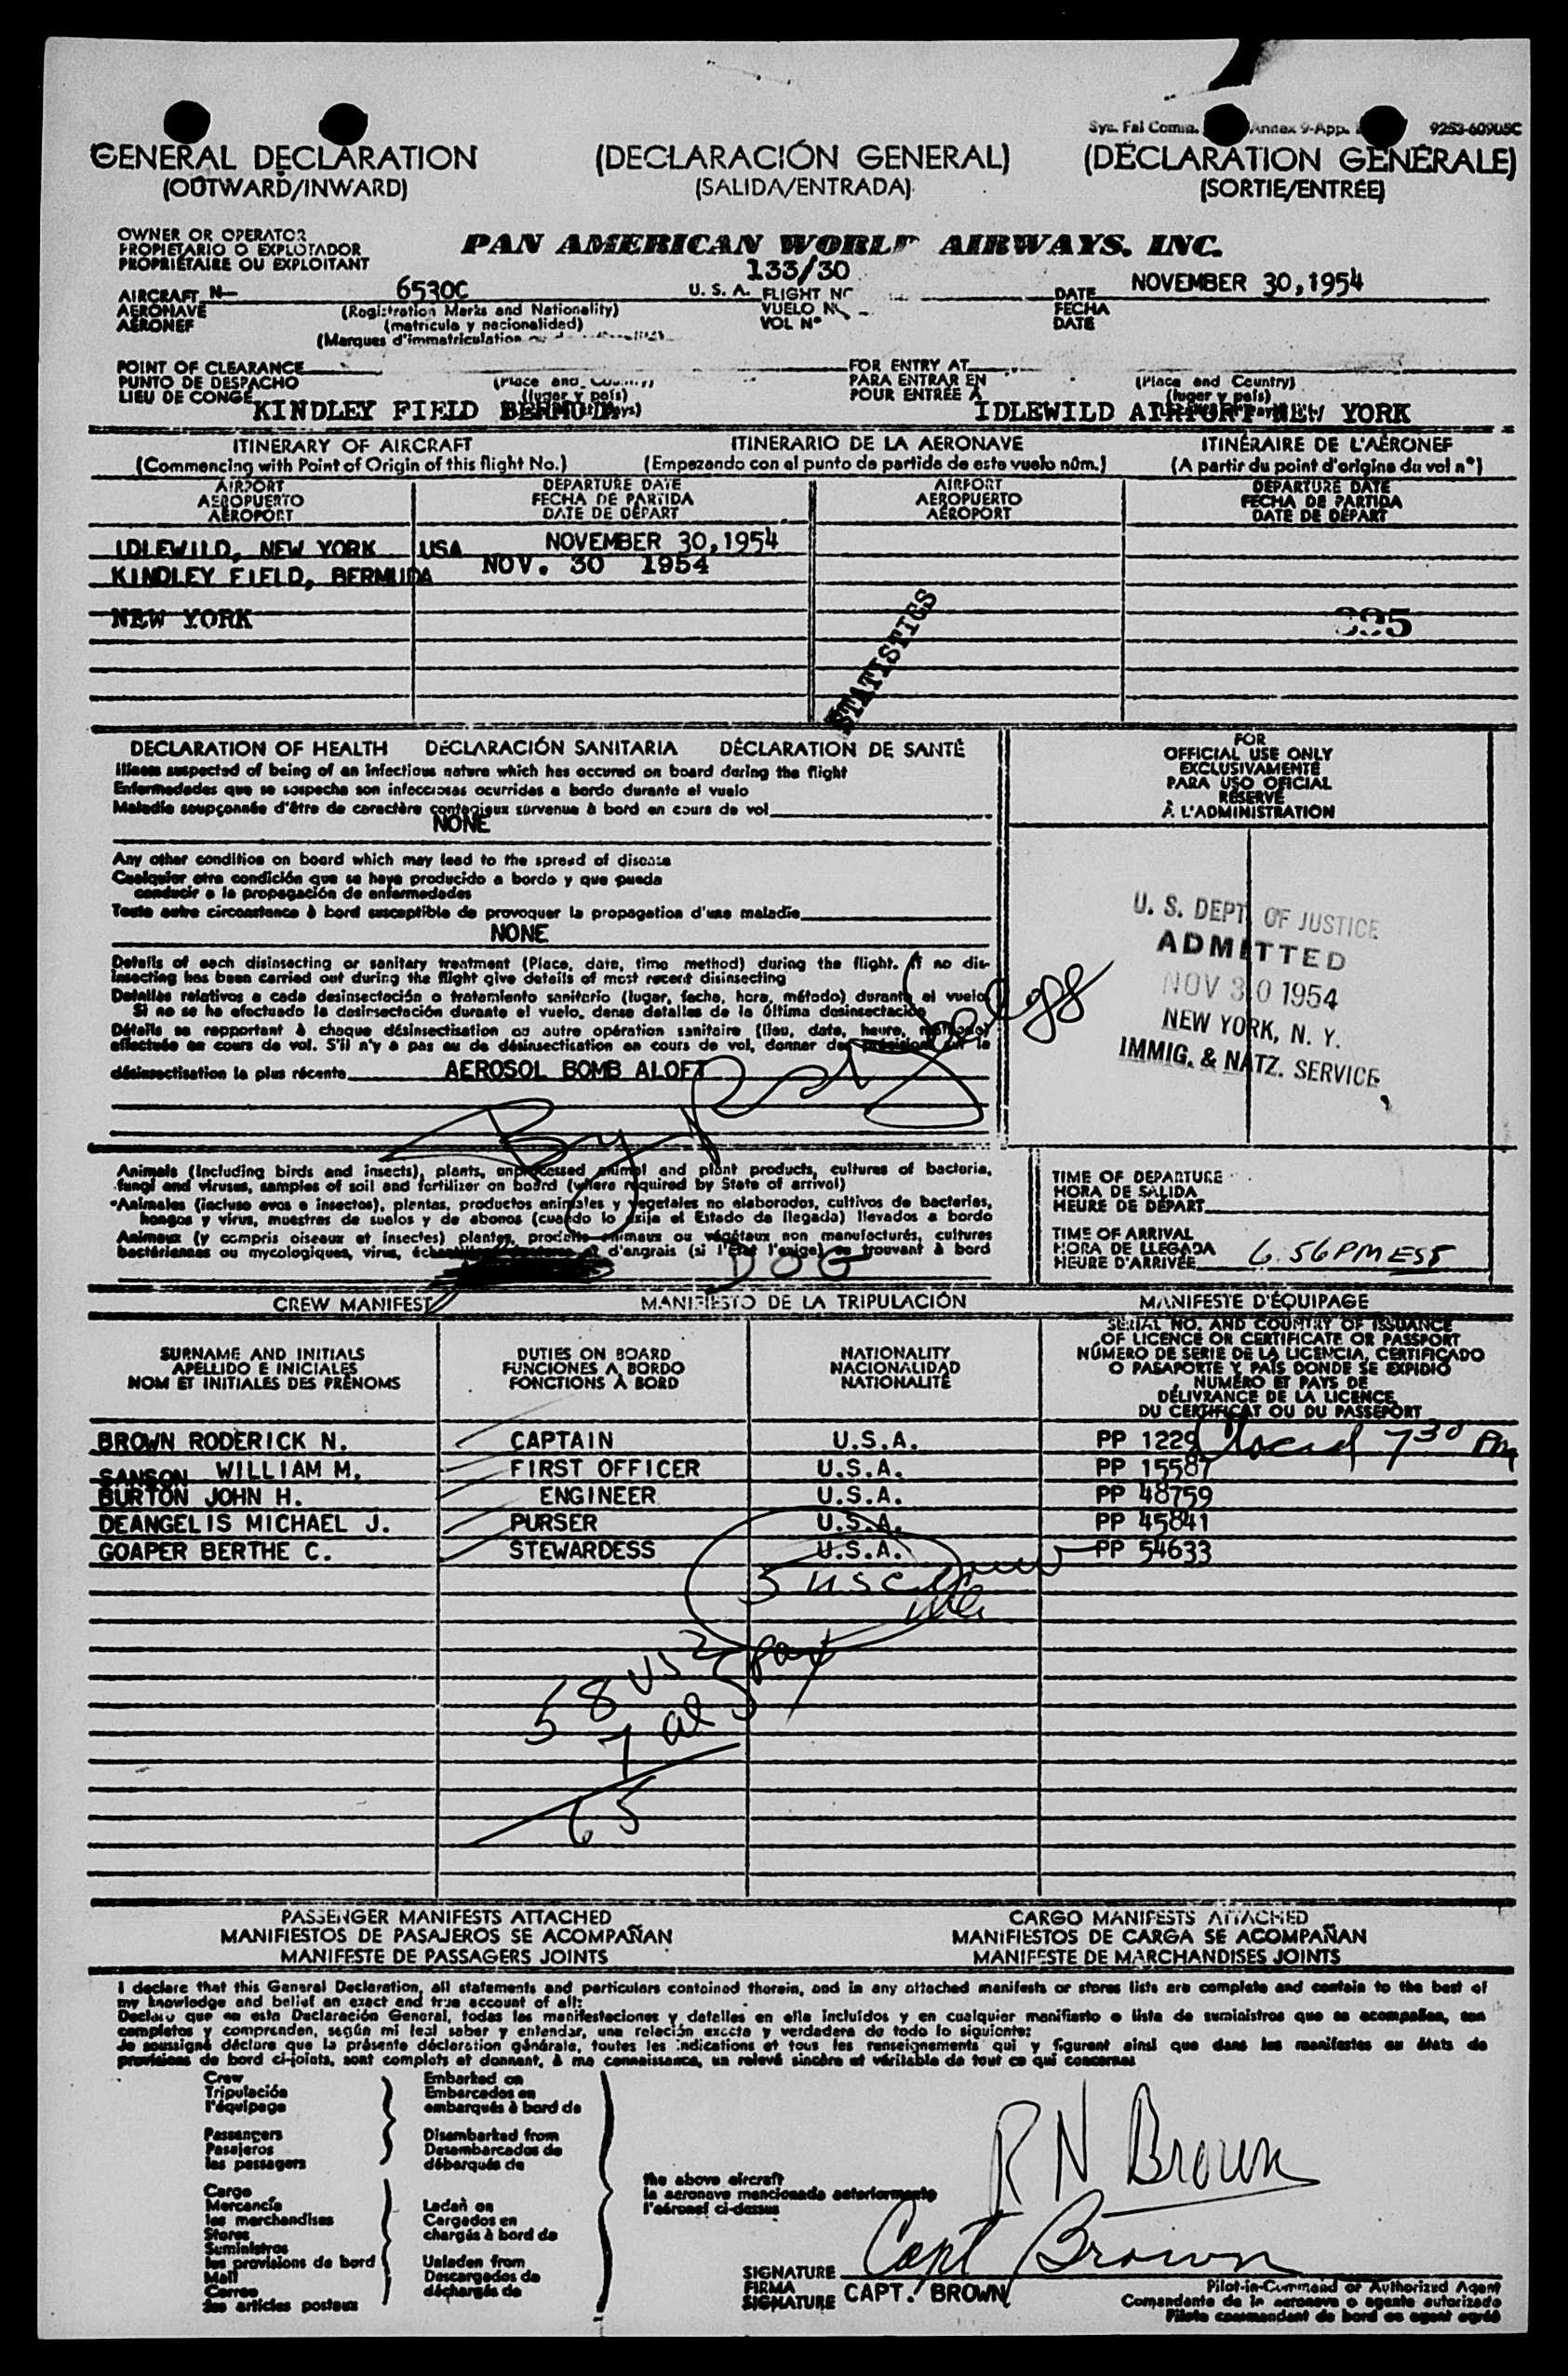 Annex 9-App. 9253-60905C
GENERAL DECLARATION (DECLARACIÓN GENERAL) (DÉCLARATION GÉNÉRALE)
(OUTWARD/INWARD) (SALIDA/ENTRADA) (SORTIE/ENTRÉE)
OWNER OR OPERATOR
PROPIETARIO O EXPLOTADOR
PROPRIÉTAIRE OU EXPLOITANT
PAN AMERICAN WORLD AIRWAYS, INC.
133/30
AIRCRAFT N- 6530C U. S. A. FLIGHT Nº DATE NOVEMBER 30,1954
AERONAVE (Registration Marks and Nationality) VUELO Nº FECHA
AÉRONEF (matrícula y nacionalidad) VOL Nº DATE
(Marques d'immatriculation
POINT OF CLEARANCE FOR ENTRY AT
PUNTO DE DESPACHO (Place and Country) PARA ENTRAR EN (Place and Country)
LIEU DE CONGÉ (lugar y país) POUR ENTRÉE A (lugar y país)
KINDLEY FIELD BERMUDA IDLEWILD AIRPORT NEW YORK
ITINERARY OF AIRCRAFT ITINERARIO DE LA AERONAVE ITINÉRAIRE DE L'AÉRONEF
(Commencing with Point of Origin of this flight No.) (Empezando con el punto de partida de este vuelo núm.) (A partir du point d'origine du vol nº)
AIRPORT DEPARTURE DATE AIRPORT DEPARTURE DATE
AEROPUERTO FECHA DE PARTIDA AEROPUERTO FECHA DE PARTIDA
AÉROPORT DATE DE DÉPART AÉROPORT DATE DE DÉPART
IDLEWILD, NEW YORK USA NOVEMBER 30,1954
KINDLEY FIELD, BERMUDA NOV. 30 1954
NEW YORK
STATISTICS
DECLARATION OF HEALTH DECLARACIÓN SANITARIA DÉCLARATION DE SANTÉ
Illness suspected of being of an infectious nature which has occured on board during the flight
Enfermedades que se sospecha son infecciosas ocurridas a bordo durante el vuelo
Maladie soupçonnée d'être de caractère contagieux survenue à bord en cours de vol
NONE
Any other condition on board which may lead to the spread of disease
Cualquier otra condición que se haya producido a bordo y que pueda
conducir a la propagación de enfermedades
Toute autre circonstance à bord susceptible de provoquer la propagation d'une maladie
NONE
Details of each disinsecting or sanitary treatment (Place, date, time method) during the flight. If no dis-
insecting has been carried out during the flight give details of most recent disinsecting
Detalles relativos a cada desinsectación o tratamiento sanitario (lugar, fecha, hora, método) durante el vuelo
Si no se ha efectuado la desinsectación durante el vuelo, dense detalles de la última desinsectación
Détails se rapportant à chaque désinsectisation ou autre opération sanitaire (lieu, date, heure, méthode)
effectuée en cours de vol. S'il n'y a pas eu de désinsectisation en cours de vol, donner des précisions sur la
désinsectisation la plus récente AEROSOL BOMB ALOFT
FOR
OFFICIAL USE ONLY
EXCLUSIVAMENTE
PARA USO OFICIAL
RÉSERVÉ
À L'ADMINISTRATION
U. S. DEPT. OF JUSTICE
ADMITTED
NOV 30 1954
NEW YORK, N. Y.
IMMIG. & NATZ. SERVICE
Animals (Including birds and insects), plants, unprocessed animal and plant products, cultures of bacteria,
fungi and viruses, samples of soil and fertilizer on board (where required by State of arrival)
Animales (incluso aves e insectos), plantas, productos animales y vegetales no elaborados, cultivos de bacterias,
hongos y virus, muestras de suelos y de abonos (cuando lo exija el Estado de llegada) llevados a bordo
Animaux (y compris oiseaux et insectes) plantes, produits animaux ou végétaux non manufacturés, cultures
bactériennes ou mycologiques, virus, d'engrais (si l'État l'exige) se trouvant à bord
DOG
TIME OF DEPARTURE
HORA DE SALIDA
HEURE DE DÉPART
TIME OF ARRIVAL
HORA DE LLEGADA
HEURE D'ARRIVÉE 6.56PM EST
CREW MANIFEST MANIFIESTO DE LA TRIPULACIÓN MANIFESTE D'ÉQUIPAGE
SURNAME AND INITIALS
APELLIDO E INICIALES
NOM ET INITIALES DES PRÉNOMS
DUTIES ON BOARD
FUNCIONES A BORDO
FONCTIONS À BORD
NATIONALITY
NACIONALIDAD
NATIONALITÉ
SERIAL NO. AND COUNTRY OF ISSUANCE
OF LICENCE OR CERTIFICATE OR PASSPORT
NÚMERO DE SERIE DE LA LICENCIA, CERTIFICADO
O PASAPORTE Y PAÍS DONDE SE EXPIDIÓ
NUMÉRO ET PAYS DE
DÉLIVRANCE DE LA LICENCE,
DU CERTIFICAT OU DU PASSEPORT
BROWN RODERICK N. CAPTAIN U.S.A. PP 1229 Closed 7 30 PM
SANSON WILLIAM M. FIRST OFFICER U.S.A. PP 15587
BURTON JOHN H. ENGINEER U.S.A. PP 48759
DEANGELIS MICHAEL J. PURSER U.S.A. PP 45841
GOAPER BERTHE C. STEWARDESS U.S.A. PP 54633
5 USC
58 USC pax
7 al
65
PASSENGER MANIFESTS ATTACHED CARGO MANIFESTS ATTACHED
MANIFIESTOS DE PASAJEROS SE ACOMPAÑAN MANIFIESTOS DE CARGA SE ACOMPAÑAN
MANIFESTE DE PASSAGERS JOINTS MANIFESTE DE MARCHANDISES JOINTS
I declare that this General Declaration, all statements and particulars contained therein, and in any attached manifests or stores lists are complete and contain to the best of
my knowledge and belief an exact and true account of all:
Declaro que en esta Declaración General, todas las manifestaciones y detalles en ella incluidos y en cualquier manifiesto o lista de suministros que se acompañan, son
completos y comprenden, según mi leal saber y entender, una relación exacta y verdadera de todo lo siguiente:
Je soussigné déclare que la présente déclaration générale, toutes les indications et tous les renseignements qui y figurent ainsi que dans les manifestes ou états de
provisions de bord ci-joints, sont complets et donnent, à ma connaissance, un relevé sincère et véritable de tout ce qui concernes
Crew Embarked on
Tripulación Embarcados en
l'équipage embarqués à bord de
Passengers Disembarked from
Pasajeros Desembarcados de
les passagers débarqués de
the above aircraft
la aeronave mencionada anteriormente
l'aéronef ci-dessus
Cargo
Mercancía Laden on
les marchandises Cargados en
Stores chargés à bord de
Suministros
les provisions de bord Unladen from
Mail Descargados de
Correo déchargés de
les articles postaux
R N Brown
Capt Brown
SIGNATURE
FIRMA
SIGNATURE CAPT. BROWN
Pilot-in-Command or Authorized Agent
Comandante de la aeronave o agente autorizado
Pilote commandant de bord ou agent agréé